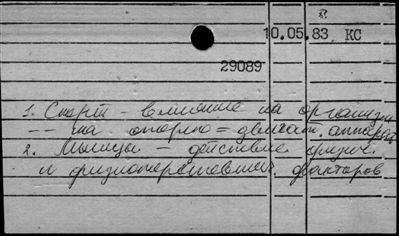 10.05.83 КС
29089
1. Спорт - влияние на организм
-- на опорно = двигат. аппарат
2. Мышцы - действие физич.
и физиотерапевтич. факторов